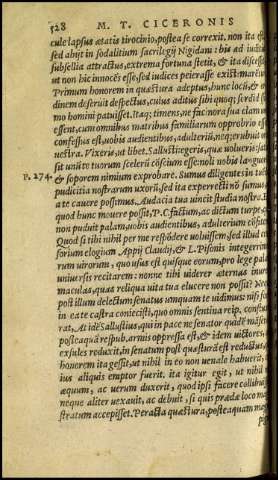 528 M. T. CICERONIS
cule lapsus ætatis tirocinio, postea se correxit. non ita est,
sed abijt in sodalitium sacrilegij Nigidiani: bis ad iudicis
subsellia attractus, extrema fortuna stetit, & ita discessit,
ut non hic innocēs esse, sed iudices peierasse
Primum honorem in quæstura adeptus, hunc locū, &
dinem deseruit despectus, cuius aditus sibi quoq; sordidissimo
mo homini patuisset. Itaq; timens, ne facinora sua clam
essent, cum omnibus matribus familiarum opprobrio
confessus est, uobis audientibus, adulteriū, neq; erubuit
uestra. Vixeris, ut libet Sallusti: egeris, quæ uolueris: sat
sit unum te tuorum scelerū cōscium esse: noli nobis languorem
P. 274. & soporem nimium exprobare. Sumus diligentes in
pudicitia nostrarum uxorū, sed ita experrecti nō sumus
a te cauere possimus. Audacia tua uincit studia nostra.
quod hunc mouere possit, P. C. factum, ac dictum turpe,
non puduit palam, uobis audientibus, adulterium cōfiteri?
Quod si tibi nihil per me respōdere uoluissem, sed illud
forium elogium Appij Claudij, & L. Pisonis integerrimorum
rum uirorum, quo usus est quisque eorum, pro lege palam
uniuersis recitarem: nonne tibi uiderer æternas
maculas, quas reliqua uita tua eluere non possit? Neq;
post illum delectum senatus umquam te uidimus: nisi
in ea te castra coniecisti, quo omnis sentina reip.
rat. At idē Sallustius, qui in pace ne senator quidē
postea quā respub. armis oppressa est, & idem uictores,
exsules reduxit, in senatum post quæsturā est reductus.
honorem ita gessit, ut nihil in eo non uenale habuerit,
ius aliquis emptor fuerit. ita igitur egit, ut nihil
æquum, ac uerum duxerit, quod ipsi facere collibuisset:
neque aliter uexauit, ac debuit, si quis prædæ loco
stratum accepisset. Peracta quæstura, postea quam